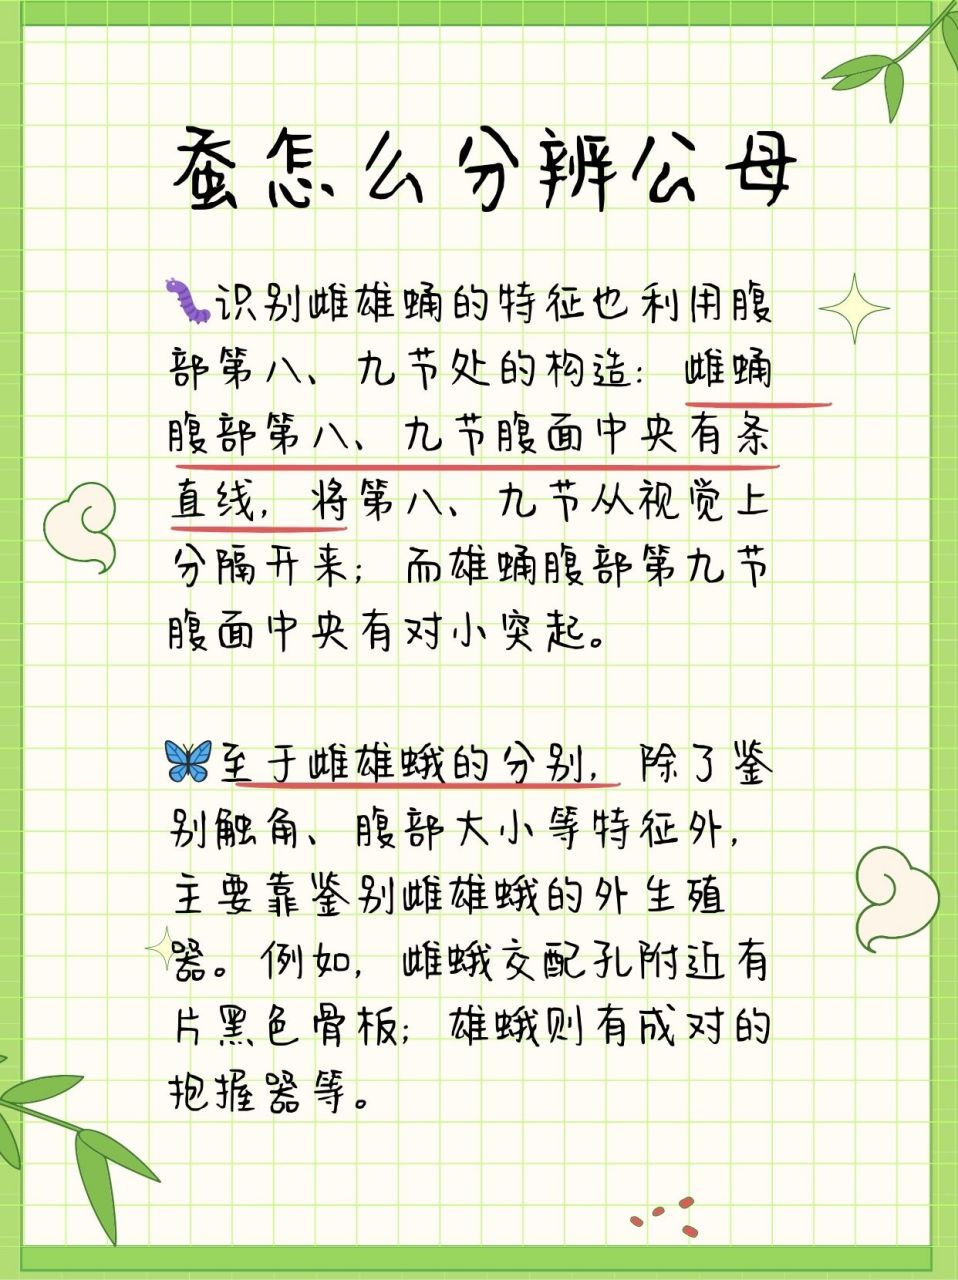 蚕怎么分辨公母
识别雌雄蛹的特征也利用腹
部第八、九节处的构造：雌蛹
腹部第八、九节腹面中央有条
直线，将第八、九节从视觉上
分隔开来；而雄蛹腹部第九节
腹面中央有对小突起。
至于雌雄蛾的分别，除了鉴
别触角、腹部大小等特征外，
主要靠鉴别雌雄蛾的外生殖
器。例如，雌蛾交配孔附近有
片黑色骨板；雄蛾则有成对的
抱握器等。